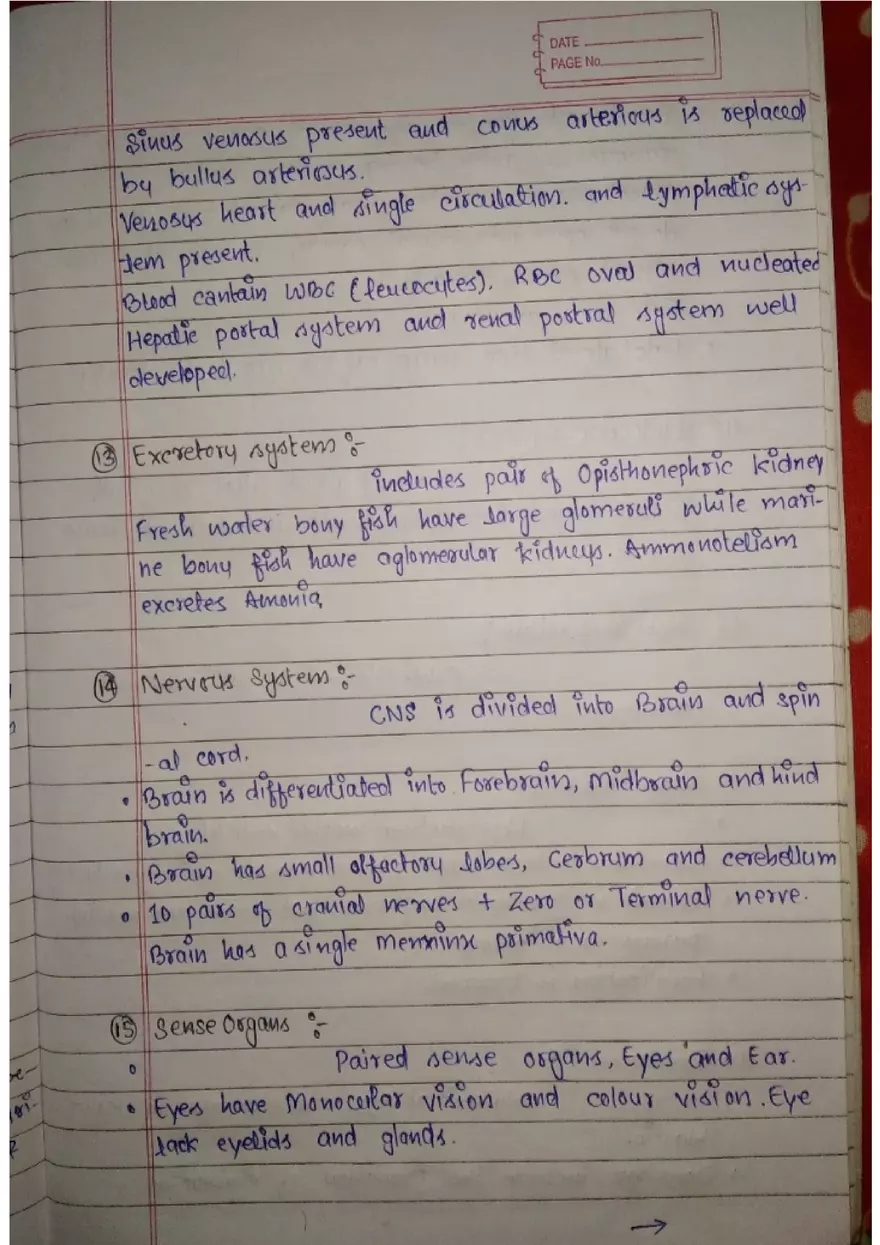 DATE
PAGE No.
Sinus venosus present and conus arterious is replaced
by bullus arteriosus.
Venosus heart and single circulation. and lymphatic sys-
tem present.
Blood cantain WBC (leucocytes). RBC oval and nucleated
Hepatic portal system and renal portral system well
developed.
13 Excretory system :-
includes pair of Opisthonephric kidney
Fresh water bony fish have large glomeruli while mari-
ne bony fish have aglomerular kidneys. Ammonotelism
excretes Amonia,
14 Nervous System :-
CNS is divided into Brain and spin
-al cord.
• Brain is differentiated into Forebrain, Midbrain and hind
brain.
• Brain has small olfactory lobes, Cerbrum and cerebellum
• 10 pairs of cranial nerves + Zero or Terminal nerve.
Brain has a single primativa.
15 Sense Organs :-
• Paired sense organs, Eyes and Ear.
• Eyes have Monocular vision and colour vision. Eye
lack eyelids and glands.
→